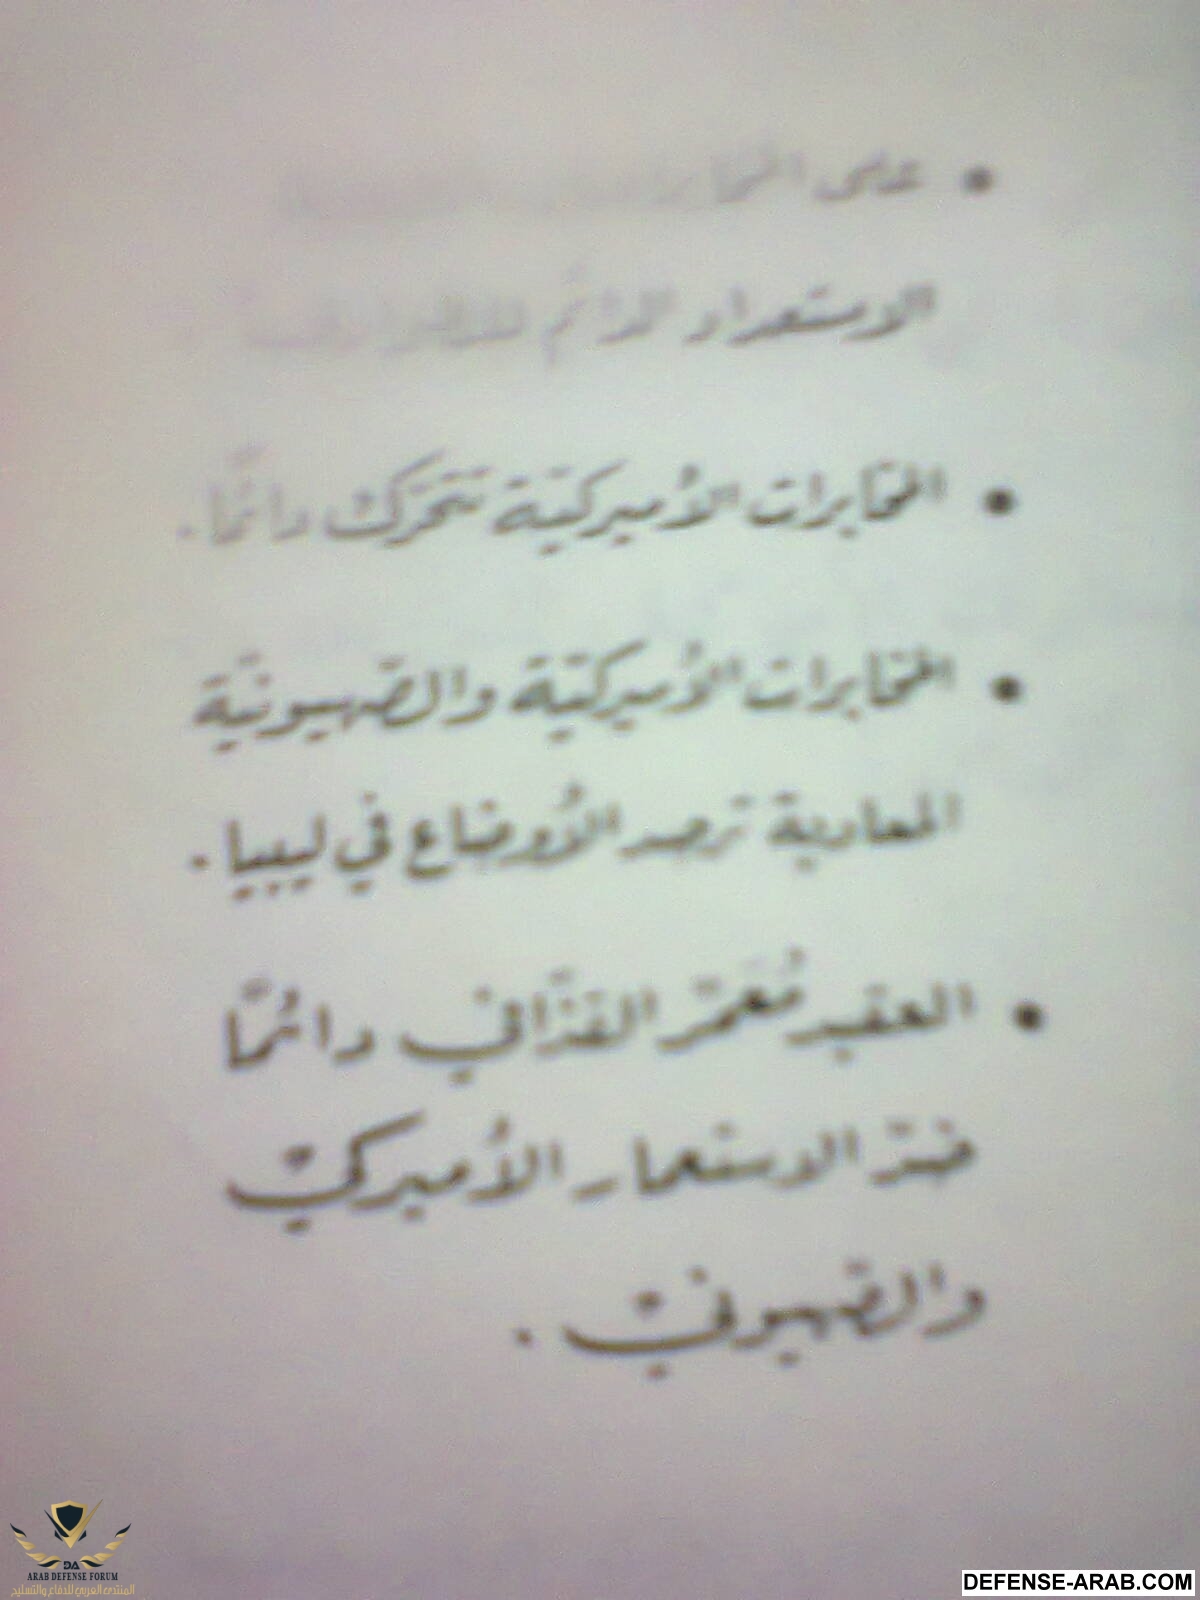 • على المخابرات
الاستعداد الدائم
• المخابرات الأميركيّة تتحرّك دائمًا.
• المخابرات الأميركيّة والصّهيونيّة
المعادية ترصد الأوضاع في ليبيا.
• العقيد مُعَمّر القذّافي دائمًا
ضدّ الاستعمار الأميركيّ
والصّهيونيّ.
DA
ARAB DEFENSE FORUM
المنتدى العربي للدفاع والتسليح
DEFENSE-ARAB.COM